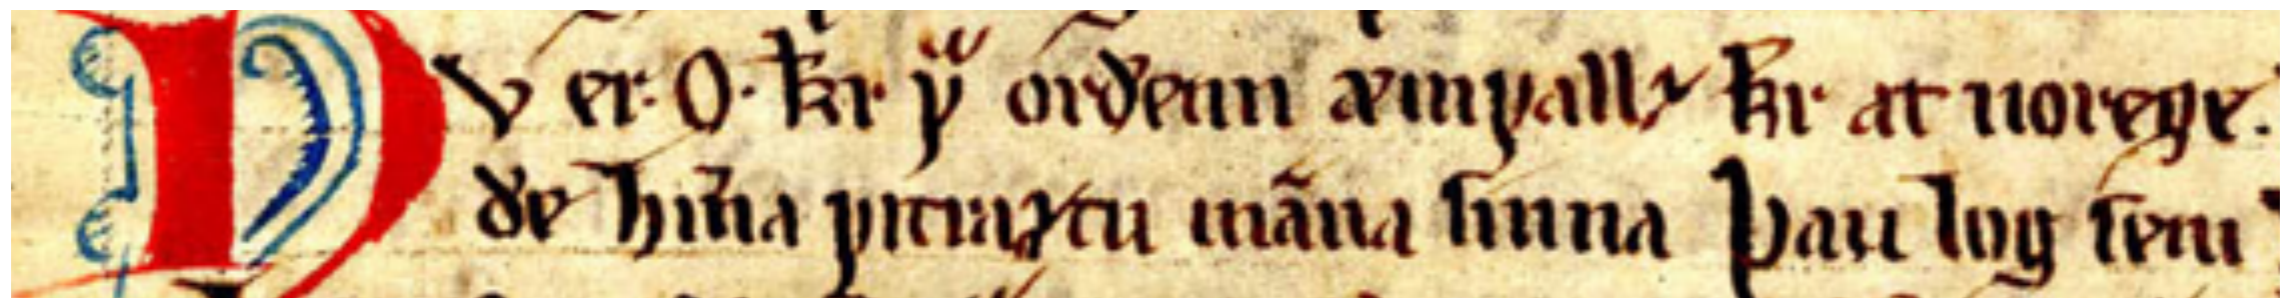 NV er· O· kr̄ yͬ orðenn æinvallz kr̄ at norege.
ðe hin̄a vitraztu mān̄a sinna þau log sem